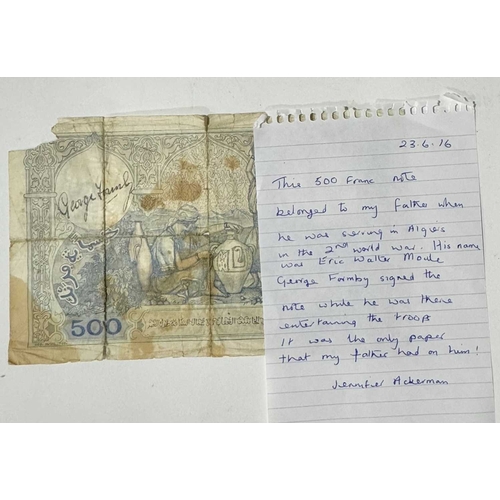 George Formby
خمسمائة فرنك
500
23.6.16
This 500 Franc note
belonged to my Father when
he was serving in Algiers
in the 2nd world war. His name
was Eric Walter Moule
George Formby signed the
note while he was there
entertaining the troops
It was the only paper
that my father had on him!
Jennifer Ackerman